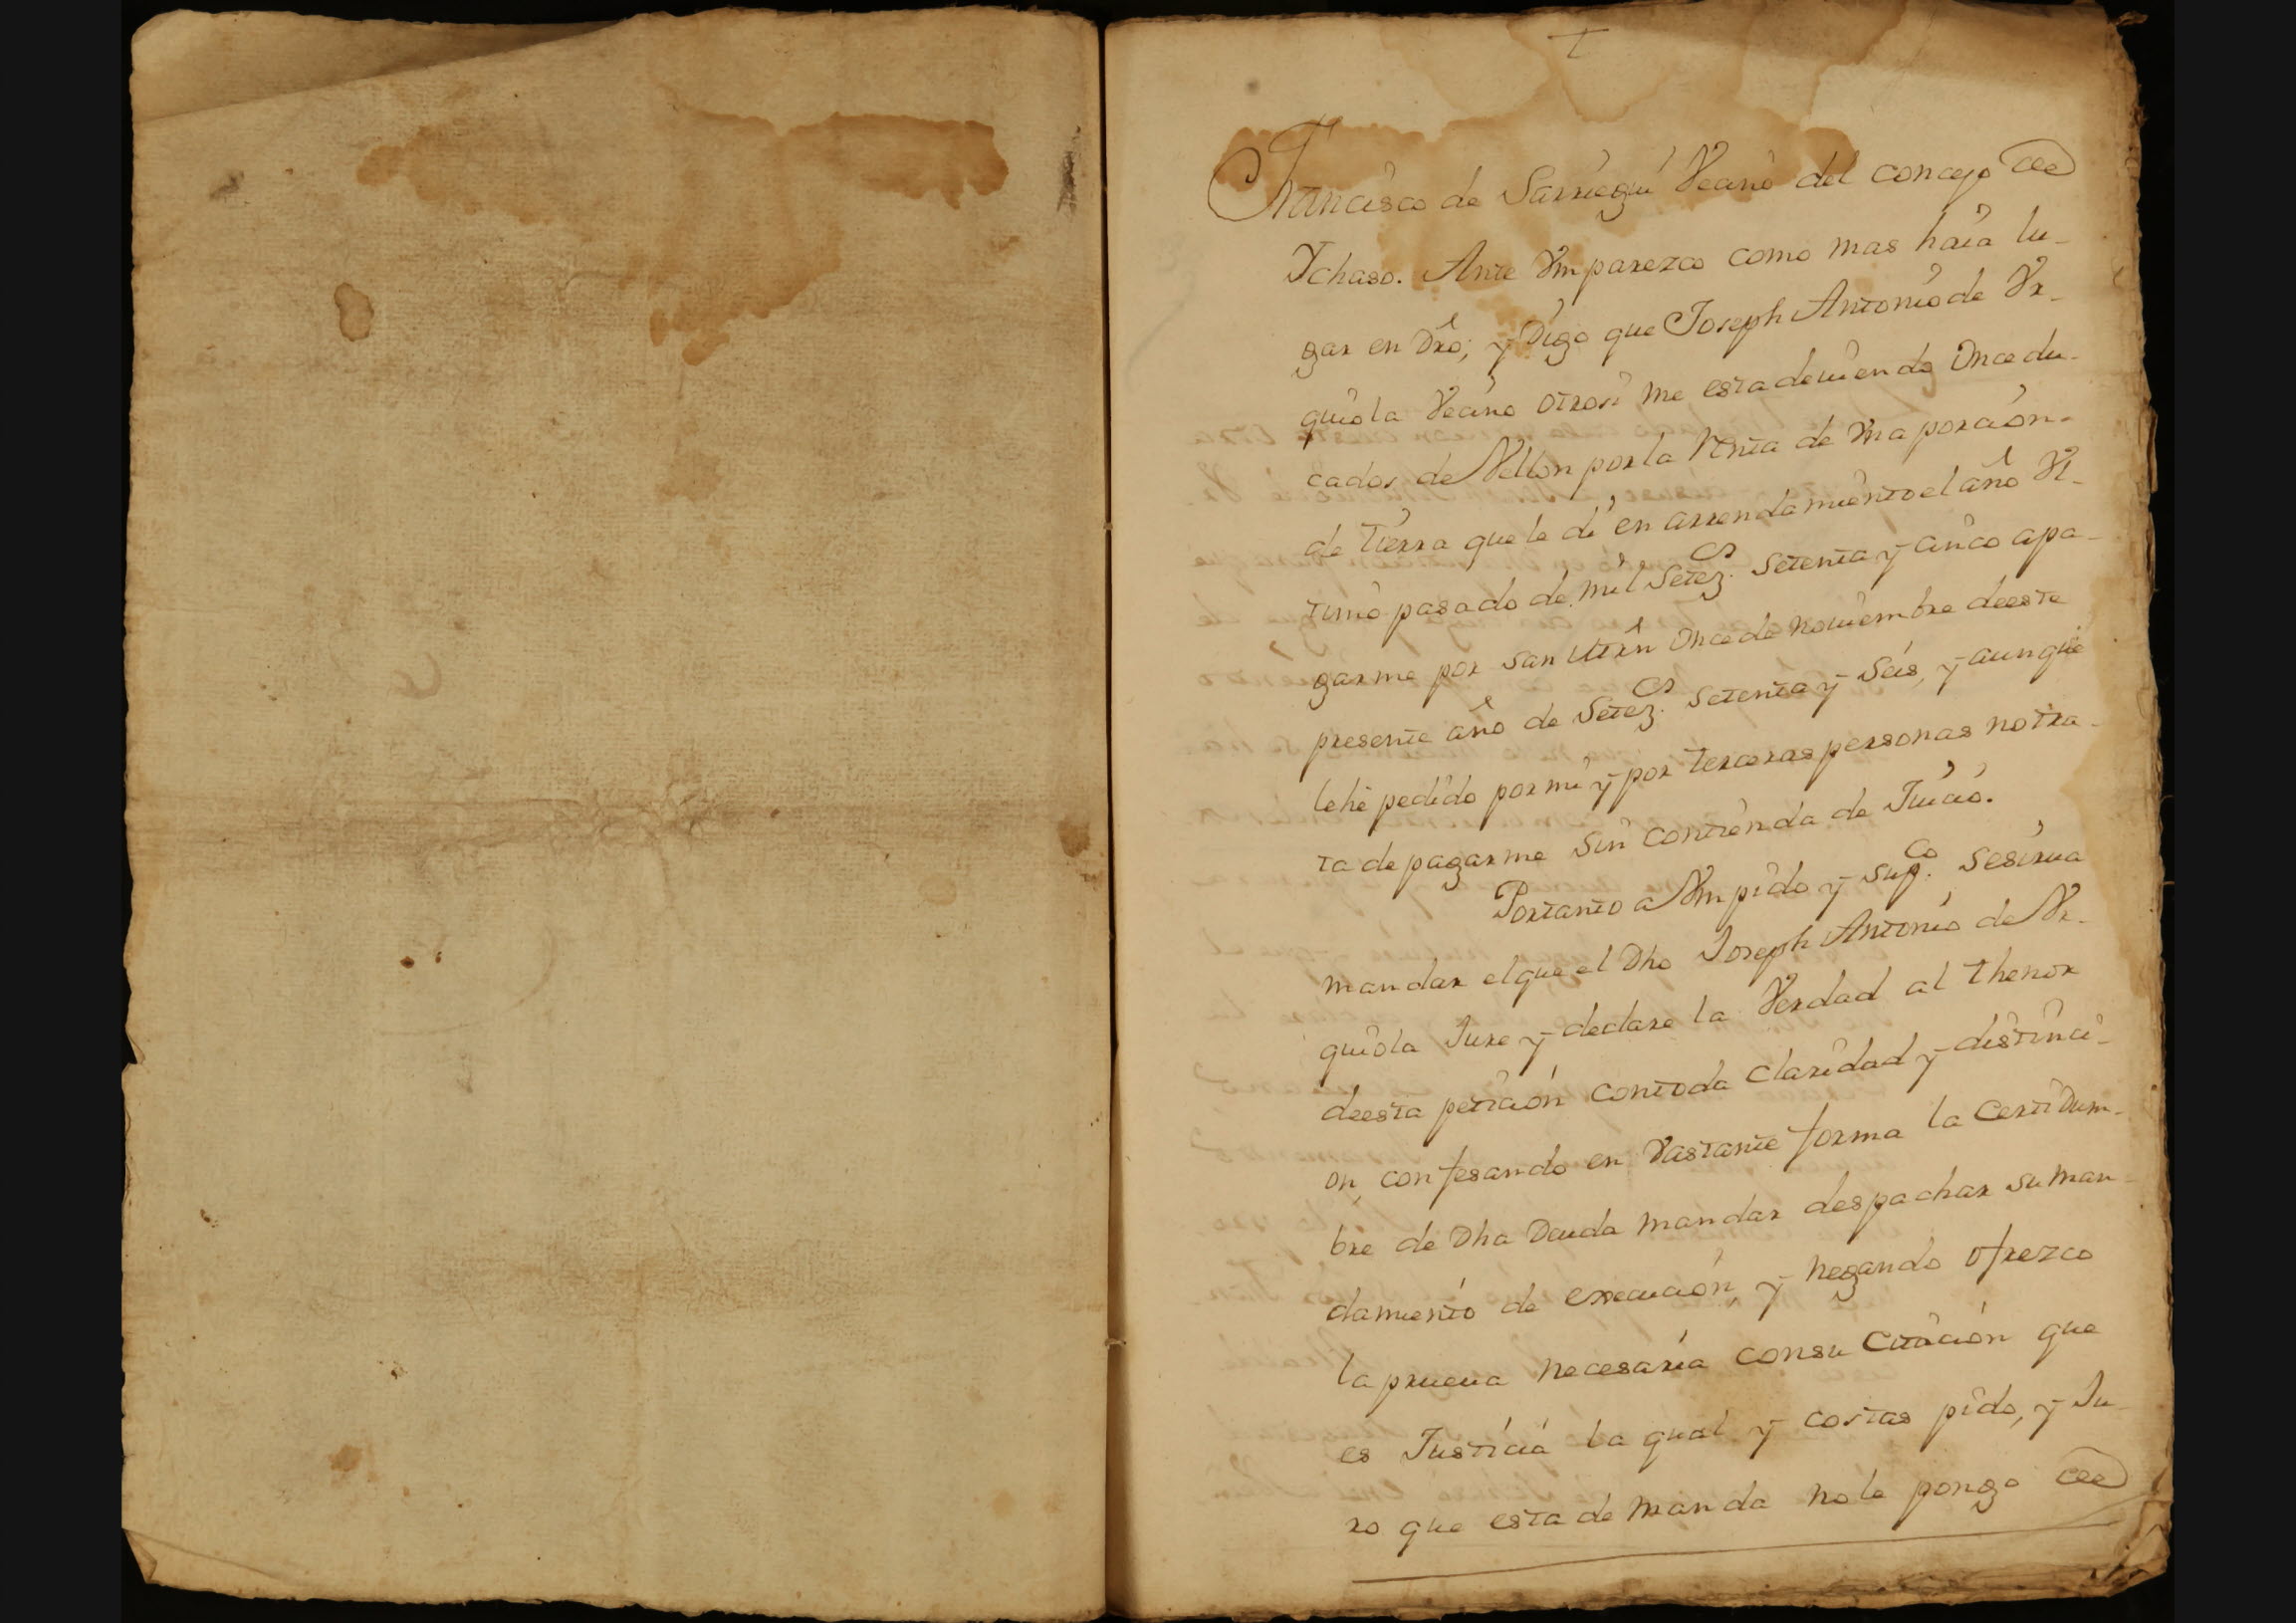 Francisco de Sarriegui Vecino del concejo de
Ychaso. Ante Vm parezco como mas haia lu-
gar en Dro; y Digo que Joseph Antonio de Vr-
quiola Vecino otrosi me esta deuiendo Once du-
cados de Vellon por la Renta de Vna porcion
de tierra que le di en arrendamiento el año Vl-
timo pasado de mil Setez.os Setenta y cinco a pa-
garme por San Mrñ Once de Nouiembre de este
presente año de Setez.os Setenta y Seis, y aunque
le hè pedido por mi y por terceras personas no tra-
ta de pagarme sin contienda de Juicio.
Por tanto a Vm pido y sup.co se sirua
mandar el que el Dho Joseph Antonio de Vr-
quiola Jure y declare la Verdad al thenor
de esta peticion con toda claridad y distinci-
on, confesando en Vastante forma la Certidum-
bre de Dha Deuda mandar despachar su man-
damiento de execucion, y negando ofrezco
la prueua necesaria con su Citacion que
es Justicia la qual y costas pido, y Ju-
ro que esta demanda no le pongo de